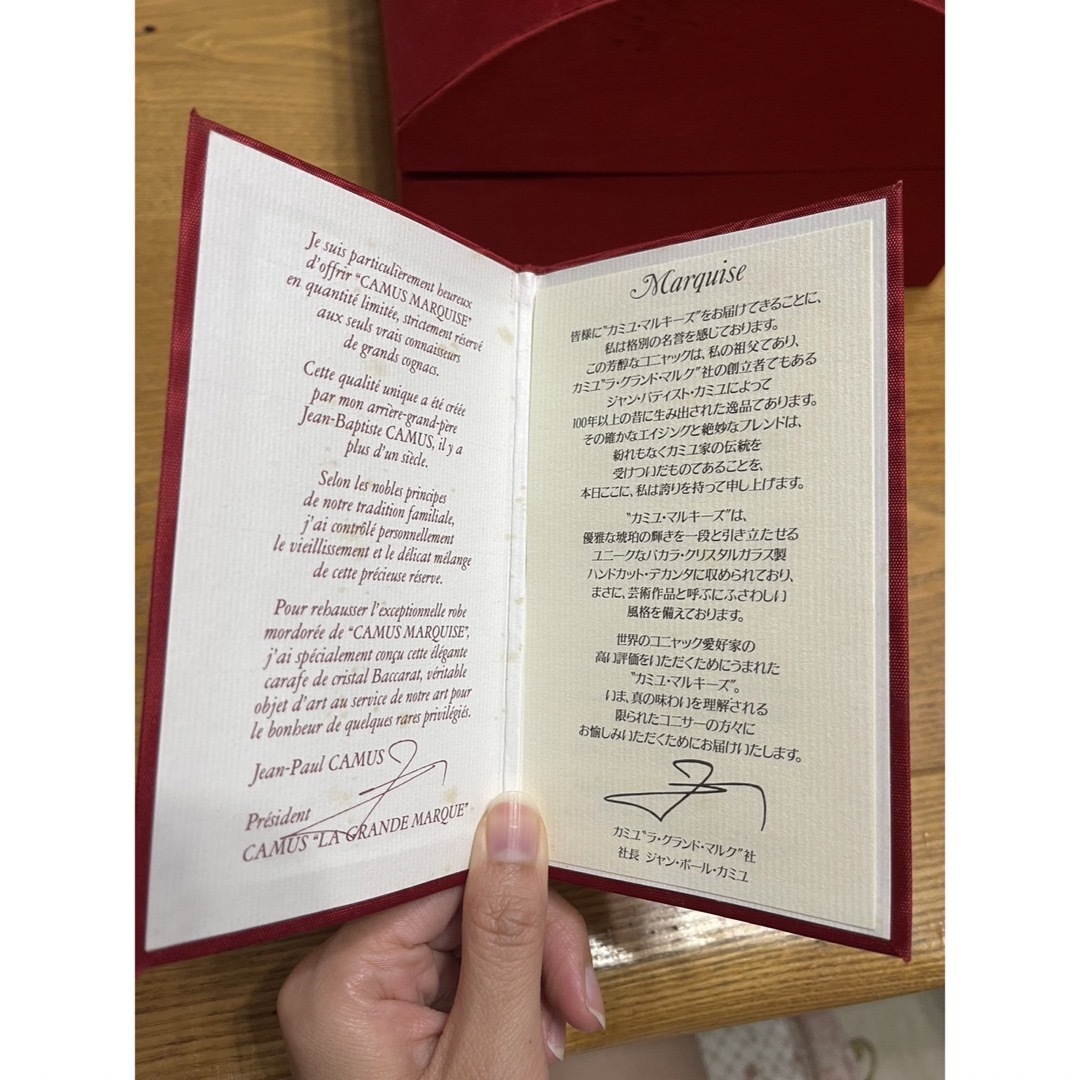 Je suis particulièrement heureux
d'offrir "CAMUS MARQUISE"
en quantité limitée, strictement réservé
aux seuls vrais connaisseurs
de grands cognacs.
Cette qualité unique a été créée
par mon arrière-grand-père
Jean-Baptiste CAMUS, il y a
plus d'un siècle.
Selon les nobles principes
de notre tradition familiale,
j'ai contrôlé personnellement
le vieillissement et le délicat mélange
de cette précieuse réserve.
Pour rehausser l'exceptionnelle robe
mordorée de "CAMUS MARQUISE",
j'ai spécialement conçu cette élégante
carafe de cristal Baccarat, véritable
objet d'art au service de notre art pour
le bonheur de quelques rares privilégiés.
Jean-Paul CAMUS
Président
CAMUS "LA GRANDE MARQUE"
Marquise
皆様に"カミユ・マルキーズ"をお届けできることに、
私は格別の名誉を感じております。
この芳醇なコニャックは、私の祖父であり、
カミユ"ラ・グランド・マルク"社の創立者でもある
ジャン・バティスト・カミユによって
100年以上の昔に生み出された逸品であります。
その確かなエイジングと絶妙なブレンドは、
紛れもなくカミユ家の伝統を
受けついだものであることを、
本日ここに、私は誇りを持って申し上げます。
"カミユ・マルキーズ"は、
優雅な琥珀の輝きを一段と引き立たせる
ユニークなバカラ・クリスタルガラス製
ハンドカット・デカンタに収められており、
まさに、芸術作品と呼ぶにふさわしい
風格を備えております。
世界のコニャック愛好家の
高い評価をいただくためにうまれた
"カミユ・マルキーズ"。
いま、真の味わいを理解される
限られたコニサーの方々に
お愉しみいただくためにお届けいたします。
カミユ"ラ・グランド・マルク"社
社長 ジャン・ポール・カミユ